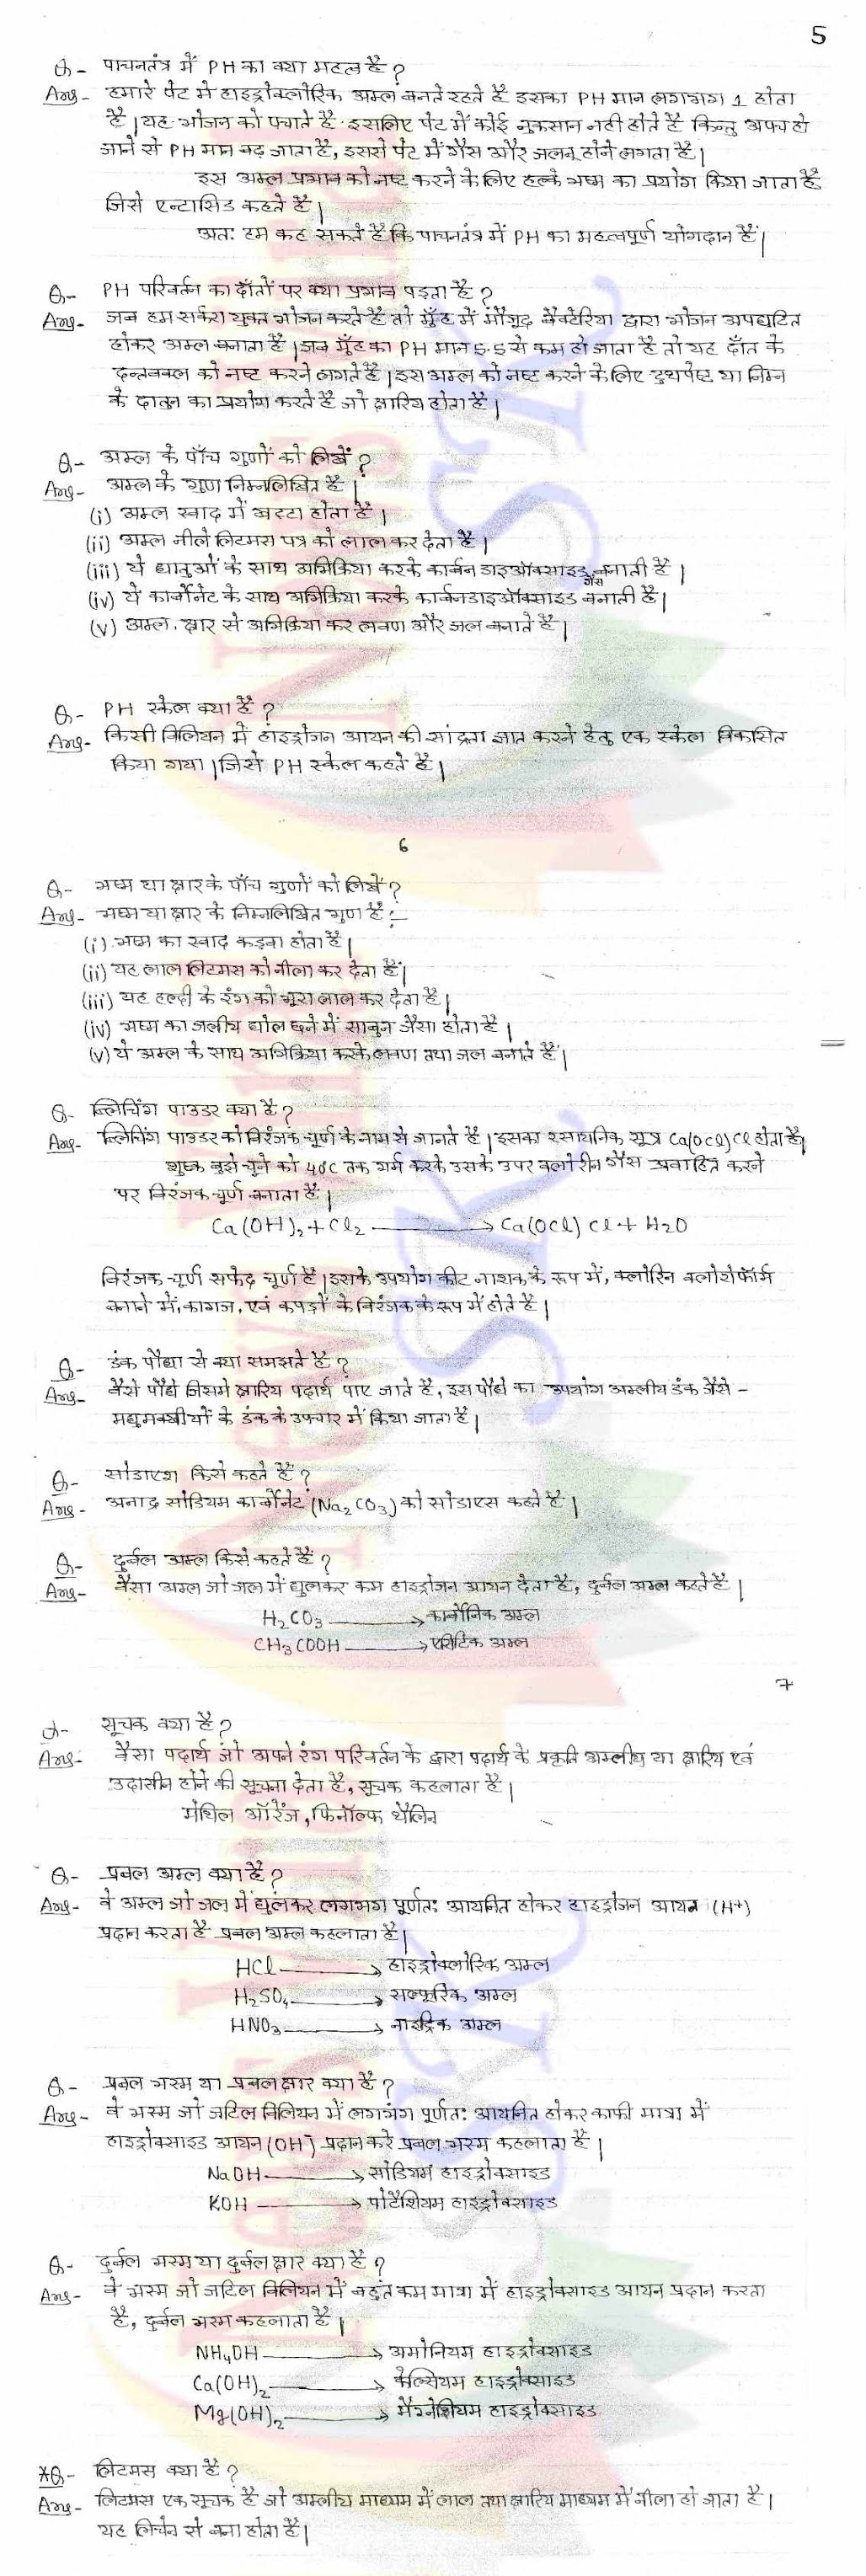 5
Q- पाचनतंत्र में PH का क्या महत्व है?
Ans- हमारे पेट में हाइड्रोक्लोरिक अम्ल बनते रहते है इसका PH मान लगभग 1 होता
है | यह भोजन को पचाते है इसलिए पेट में कोई नुकसान नही होते है किन्तु अपच हो
जाने से PH मान बढ़ जाता है, इससे पेट में गैस और जलन होने लगता है |
इस अम्ल प्रभाव को नष्ट करने के लिए हल्के भष्म का प्रयोग किया जाता है
जिसे एन्टासिड कहते है |
अतः हम कह सकते है कि पाचनतंत्र में PH का महत्वपूर्ण योगदान है |
Q- PH परिवर्तन का दाँतों पर क्या प्रभाव पड़ता है ?
Ans- जब हम सर्करा युक्त भोजन करते है तो मुँह में मौजूद बैक्टेरिया द्वारा भोजन अपघटित
होकर अम्ल बनाता है | जब मुँह का PH मान 5.5 से कम हो जाता है तो यह दाँत के
दन्तवल्क को नष्ट करने लगते है | इस अम्ल को नष्ट करने के लिए टुथपेष्ट या निम्न
के दातुन का प्रयोग करते है जो क्षारिय होता है |
Q- अम्ल के पाँच गुणों को लिखें ?
Ans- अम्ल के गुण निम्नलिखित है |
(i) अम्ल स्वाद में खट्टा होता है |
(ii) अम्ल नीले लिटमस पत्र को लाल कर देता है |
(iii) ये धातुओं के साथ अभिक्रिया करके कार्बन डाइऑक्साइड गैस बनाती है |
(iv) ये कार्बोनेट के साथ अभिक्रिया करके कार्बनडाइऑक्साइड बनाती है |
(v) अम्ल, क्षार से अभिक्रिया कर लवण और जल बनाते है |
Q- PH स्केल क्या है ?
Ans- किसी विलियन में हाइड्रोजन आयन की सांद्रता ज्ञात करने हेतु एक स्केल विकासित
किया गया | जिसे PH स्केल कहते है |
6
Q- भष्म या क्षार के पाँच गुणों को लिखें ?
Ans- भष्म या क्षार के निम्नलिखित गुण है :-
(i) भष्म का स्वाद कड़वा होता है |
(ii) यह लाल लिटमस को नीला कर देता है |
(iii) यह हल्दी के रंग को भूरा लाल कर देता है |
(iv) भष्म का जलीय घोल छुने में साबुन जैसा होता है |
(v) ये अम्ल के साथ अभिक्रिया करके लवण तथा जल बनाते है |
Q- ब्लिचिंग पाउडर क्या है ?
Ans- ब्लिचिंग पाउडर को विरंजक चूर्ण के नाम से जानते है | इसका रसायनिक सूत्र Ca(OCl)Cl होता है |
शुष्क बुझे चूने को 40c तक गर्म करके उसके उपर क्लोरीन गैस प्रवाहित करने
पर विरंजक चूर्ण बनाता है |
Ca(OH)₂ + Cl₂ ⟶ Ca(OCl) Cl + H2O
विरंजक चूर्ण सफेद चूर्ण है | इसके उपयोग कीट नाशक के रूप में, क्लोरिन क्लोरोफॉर्म
बनाने में, कागज, एवं कपड़ों के विरंजक के रूप में होते है |
Q- डंक पौधा से क्या समझते है ?
Ans- वैसे पौधे जिसमे क्षारिय पदार्थ पाए जाते है, इस पौधे का उपयोग अम्लीय डंक जैसे -
मधुमक्खीयों के डंक के उपचार में किया जाता है |
Q- सोडाएश किसे कहते है ?
Ans- अनाद्र सोडियम कार्बोनेट (Na₂CO₃) को सोडाएस कहते है |
Q- दुर्बल अम्ल किसे कहते है ?
Ans- वैसा अम्ल जो जल में घुलकर कम हाइड्रोजन आयन देता है, दुर्बल अम्ल कहते है |
H₂CO₃ ⟶ कार्बोनिक अम्ल
CH₃COOH ⟶ एसिटिक अम्ल
7
Q- सूचक क्या है ?
Ans- वैसा पदार्थ जो अपने रंग परिवर्तन के द्वारा पदार्थ के प्रकृति अम्लीय या क्षारिय एवं
उदासीन होने की सूचना देता है, सूचक कहलाता है |
मेथिल ऑरेंज, फिनॉल्फ थैलिन
Q- प्रबल अम्ल क्या है ?
Ans- वे अम्ल जो जल में घुलकर लगभग पूर्णतः आयनित होकर हाइड्रोजन आयन (H+)
प्रदान करता है प्रबल अम्ल कहलाता है |
HCl ⟶ हाइड्रोक्लोरिक अम्ल
H₂SO₄ ⟶ सल्फूरिक अम्ल
HNO₃ ⟶ नाइट्रिक अम्ल
Q- प्रबल भस्म या प्रबल क्षार क्या है ?
Ans- वे भस्म जो जटिल विलियन में लगभग पूर्णतः आयनित होकर काफी मात्रा में
हाइड्रोक्साइड आयन (OH⁻) प्रदान करे प्रबल भस्म कहलाता है |
NaOH ⟶ सोडियम हाइड्रोक्साइड
KOH ⟶ पोटैशियम हाइड्रोक्साइड
Q- दुर्बल भस्म या दुर्बल क्षार क्या है ?
Ans- वे भस्म जो जटिल विलियन में बहुत कम मात्रा में हाइड्रोक्साइड आयन प्रदान करता
है, दुर्बल भस्म कहलाता है |
NH₄OH ⟶ अमोनियम हाइड्रोक्साइड
Ca(OH)₂ ⟶ कैल्सियम हाइड्रोक्साइड
Mg(OH)₂ ⟶ मैग्नेशियम हाइड्रोक्साइड
*Q- लिटमस क्या है ?
Ans- लिटमस एक सूचक है जो अम्लीय माध्यम में लाल तथा क्षारिय माध्यम में नीला हो जाता है |
यह लिचेन से बना होता है |